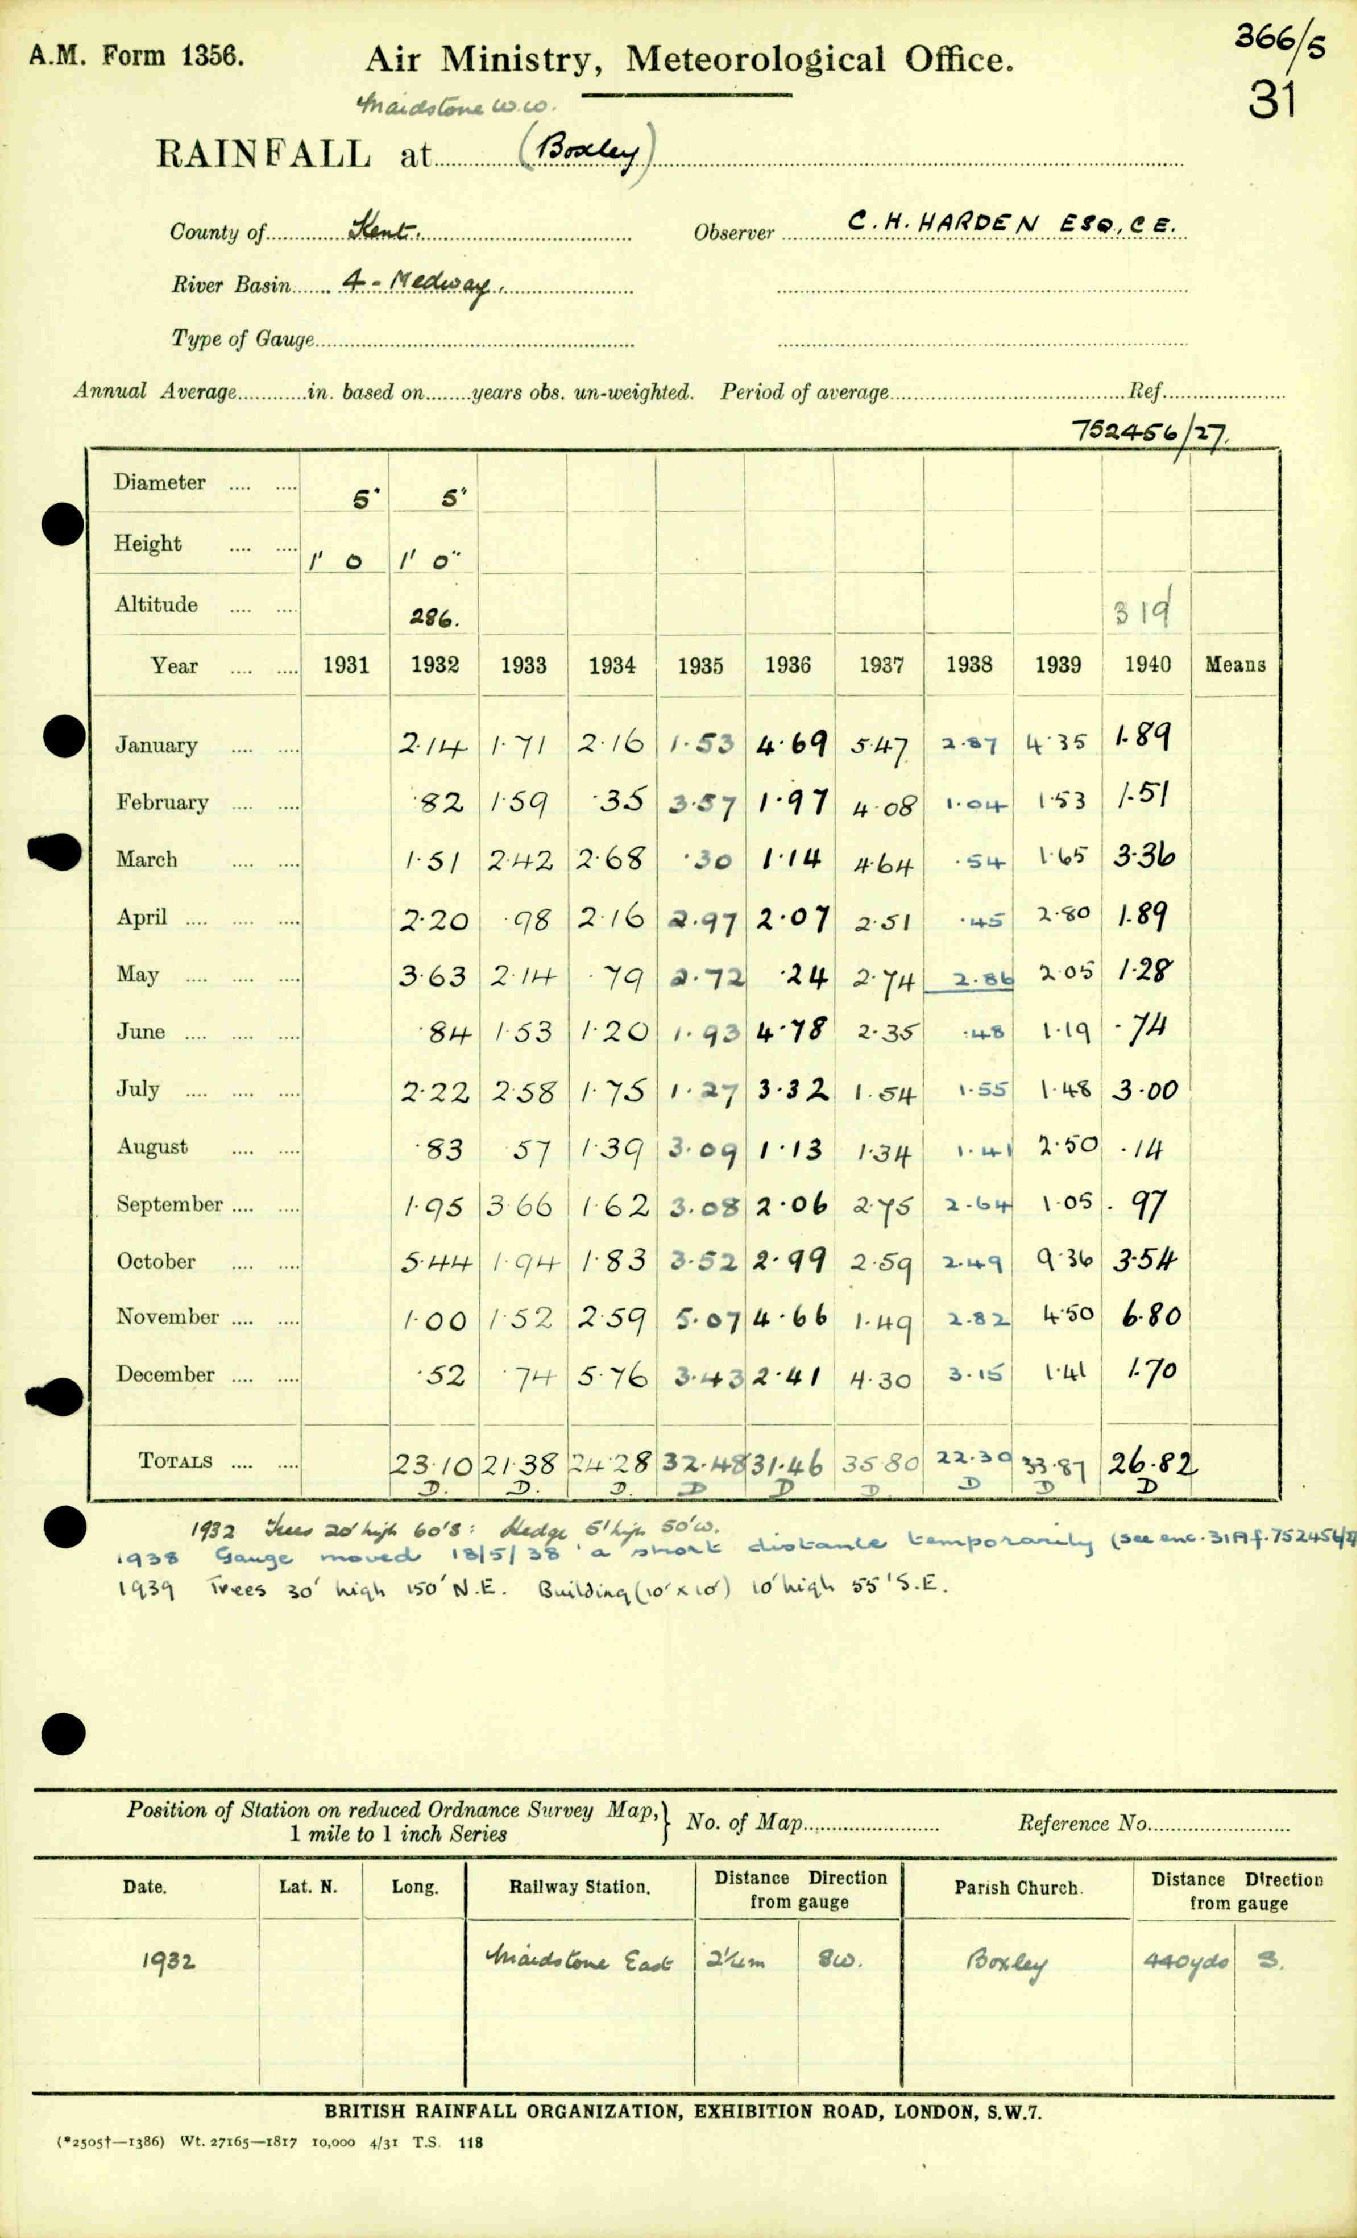 366/5
A.M. Form 1356. Air Ministry, Meteorological Office.
31
Maidstone W.W.
RAINFALL at (Boxley)
County of Kent. Observer C. H. HARDEN ESQ., C E.
River Basin 4 - Medway.
Type of Gauge
Annual Average in. based on years obs. un-weighted. Period of average Ref.
752456/27.
Diameter .... .... 5" 5"
Height .... .... 1' 0 1' 0"
Altitude .... .... 286. 319
Year .... .... 1931 1932 1933 1934 1935 1936 1937 1938 1939 1940 Means
January .... .... 2·14 1·71 2·16 1·53 4·69 5·47 2·87 4·35 1·89
February .... .... ·82 1·59 ·35 3·57 1·97 4·08 1·04 1·53 1·51
March .... .... 1·51 2·42 2·68 ·30 1·14 4·64 ·54 1·65 3·36
April .... .... .... 2·20 ·98 2·16 2·97 2·07 2·51 ·45 2·80 1·89
May .... .... .... 3·63 2·14 ·79 2·72 ·24 2·74 2·86 2·05 1·28
June .... .... .... ·84 1·53 1·20 1·93 4·78 2·35 ·48 1·19 ·74
July .... .... .... 2·22 2·58 1·75 1·27 3·32 1·54 1·55 1·48 3·00
August .... .... ·83 ·57 1·39 3·09 1·13 1·34 1·41 2·50 ·14
September .... .... 1·95 3·66 1·62 3·08 2·06 2·75 2·64 1·05 ·97
October .... .... 5·44 1·94 1·83 3·52 2·99 2·59 2·49 9·36 3·54
November .... .... 1·00 1·52 2·59 5·07 4·66 1·49 2·82 4·50 6·80
December .... .... ·52 ·74 5·76 3·43 2·41 4·30 3·15 1·41 1·70
TOTALS .... .... 23·10 21·38 24·28 32·48 31·46 35·80 22·30 33·87 26·82
D. D. D. D D D. D D D
1932 Trees 20' high 60' S: Hedge 5' high 50' W.
1938 Gauge moved 18/5/38 a short distance temporarily (see enc. 31A f. 752456/27
1939 Trees 30' high 150' N.E. Building (10' x 10') 10' high 55' S.E.
Position of Station on reduced Ordnance Survey Map, } No. of Map Reference No.
1 mile to 1 inch Series
Date. Lat. N. Long. Railway Station. Distance Direction from gauge Parish Church. Distance Direction from gauge
1932 Maidstone East 2¼m SW. Boxley 440yds S.
BRITISH RAINFALL ORGANIZATION, EXHIBITION ROAD, LONDON, S.W.7.
(*2505†—1386) Wt. 27165—1817 10,000 4/31 T.S. 118